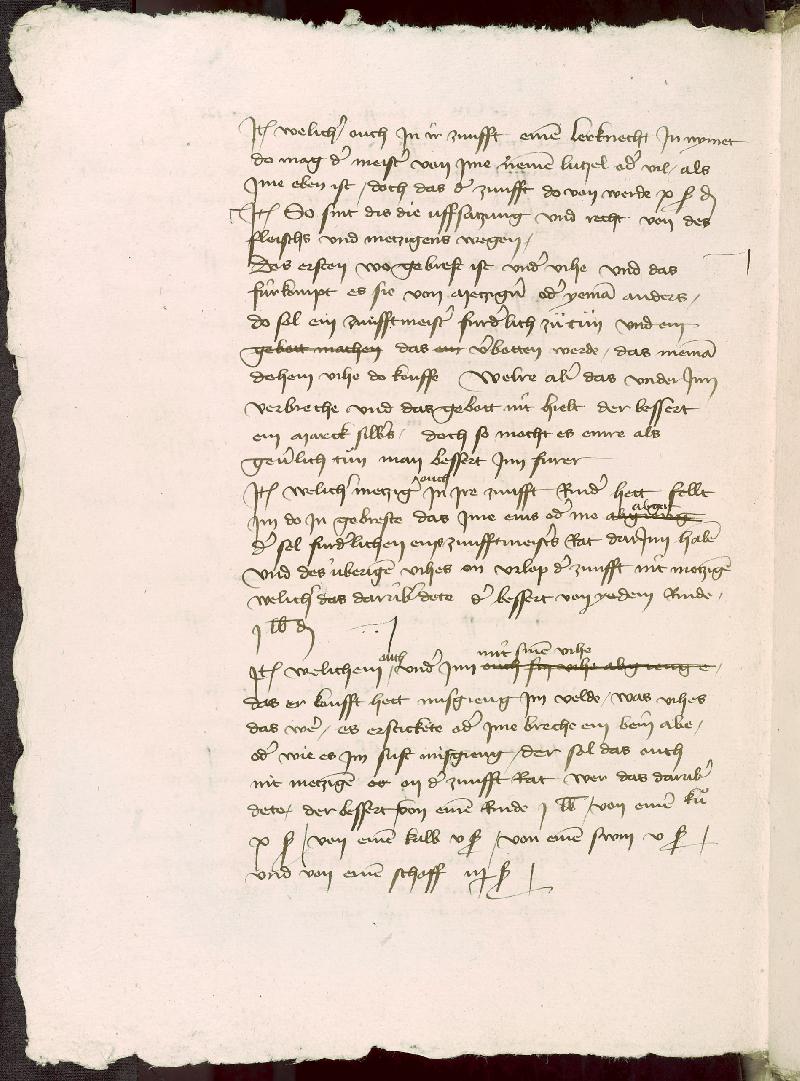 It̄ welich' ouch Jn ir zunfft einē lerknecht Jn nymet
do mag d' meist' von jme nemē lutzel od' vil / als
jme eben ist / doch das d' zunfft do von werde x ß d
It̄ So sint dis die uffsatzung vnd recht von des
fleischs vnd metzigens wegen /
Des ersten wo gebrest ist vnd' vihe vnd das
fúrkompt es sie von metzig'n od' yemā anders /
do sol ein zunfftmeist' furd'lich zů tůn vnd ein
gebott machen das ein v'botten werde / das niemā
dehein vihe do kouffe Welre ab' das vnder Inn
verbreche vnd das gebott nit hielt der bessert
ein marck silb's / doch so mocht es einre als
geu'lich tůn man bessert Inn fúrer
It̄ welich' metzig' ouch in ire zunfft Rind' hett fellt
im do In gebreste das Jme eins od' me abgieng abgat
d' sol furd'lichen eins zunfftmeist's Rat dar Jnn habē
vnd des úberigē vihes on vrlop d' zunfft nit metzigē
welich' das darúb' dete d' bessert von yedem Rinde /
j lb d
It̄ welichem ouch vnd' Inn mit sinē vihe ouch sin vihe abgienge /
das er koufft hett misgieng Im velde / was vihes
das we' / es erstickete od' Jme breche ein bein abe /
od' wie es Im sust misgieng / der sol das ouch
nit metzigē er on d' zunfft Rat wer das darúb'
dete / der bessert von einē Rinde j lb / von ein' ků
x ß / von einē kalb v ß / von einē swin v ß /
vnd von einē schoff iij ß